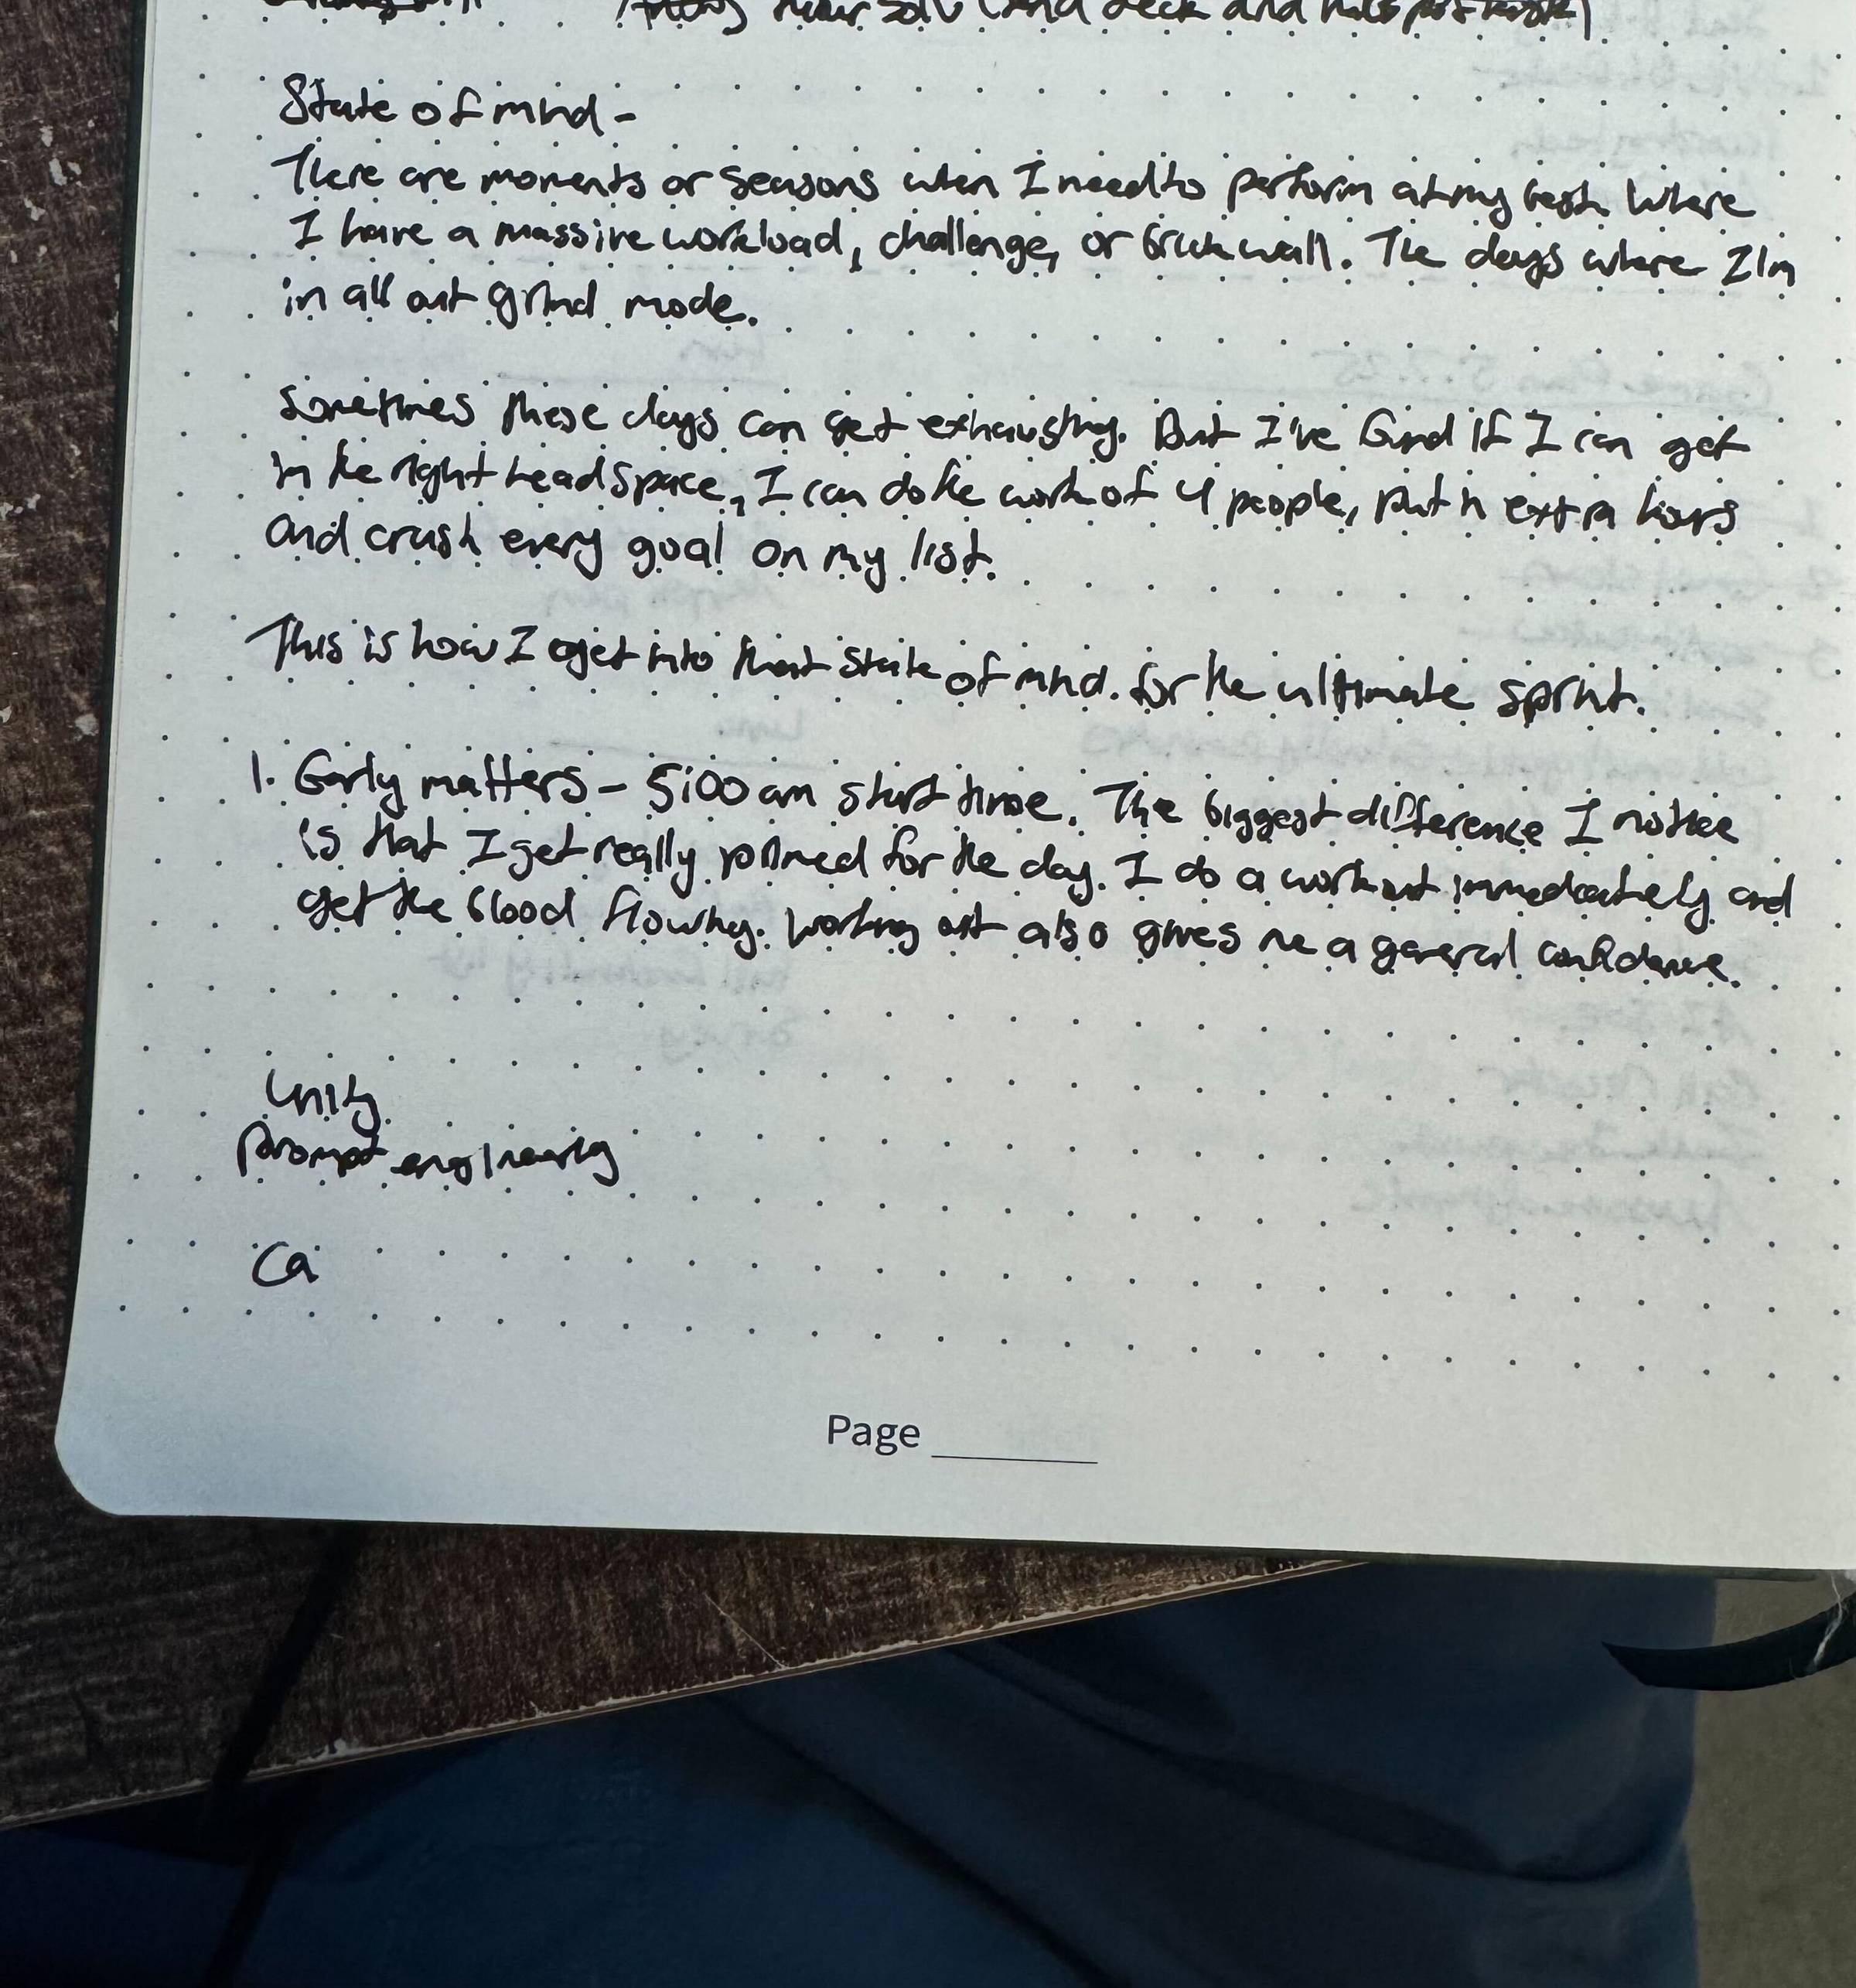 (send deck and
State of mind -
There are moments or seasons when I need to perform at my best. Where
I have a massive workload, challenge, or brick wall. The days where I'm
in all out grind mode.
Sometimes these days can get exhausting. But I've found if I can get
in the right headspace, I can do the work of 4 people, put in extra hours
and crush every goal on my list.
This is how I get into that state of mind. for the ultimate sprint.
1. Early matters - 5:00 am start time. The biggest difference I notice
is that I get really primed for the day. I do a workout immediately and
get the blood flowing. Working out also gives me a general confidence.
Unity
Prompt engineering
Ca
Page